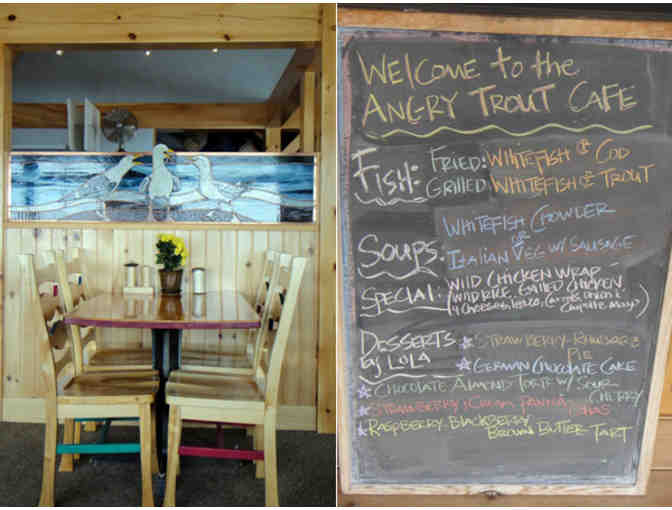 WELCOME to the
ANGRY TROUT CAFE
FISH: FRIED: WHITEFISH or COD
GRILLED: WHITEFISH or TROUT
SOUPS: WHITEFISH CHOWDER
or
ITALIAN VEG W/ SAUSAGE
SPECIAL: WILD CHICKEN WRAP
(WILD RICE, GRILLED CHICKEN,
4 CHEESES, LETTUCE, CARROTS, ONION &
MAYO)
DESSERTS by LOLA
STRAWBERRY-RHUBARB PIE
GERMAN CHOCOLATE CAKE
CHOCOLATE ALMOND TORTE W/ SOUR CHERRY
STRAWBERRY CREAM
RASPBERRY BLACKBERRY
BROWN BUTTER TART